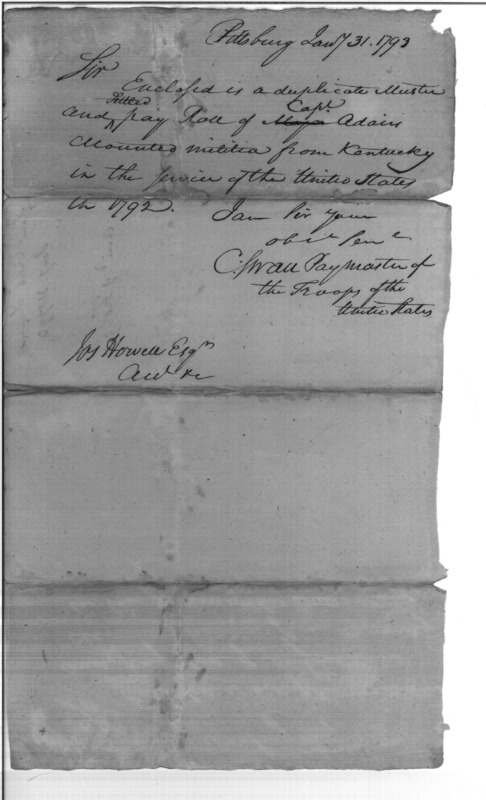 Pittsburg Jany 31. 1793
Sir
Enclosed is a duplicate Muster
and settled pay Roll of Major Capt. Adairs
Mounted militia from Kentucky
in the service of the United States
in 1792. I am Sir your
obt. Sert.
C. Swan Paymaster of
the Troops of the
United States
Jos Howell Esqr
&c